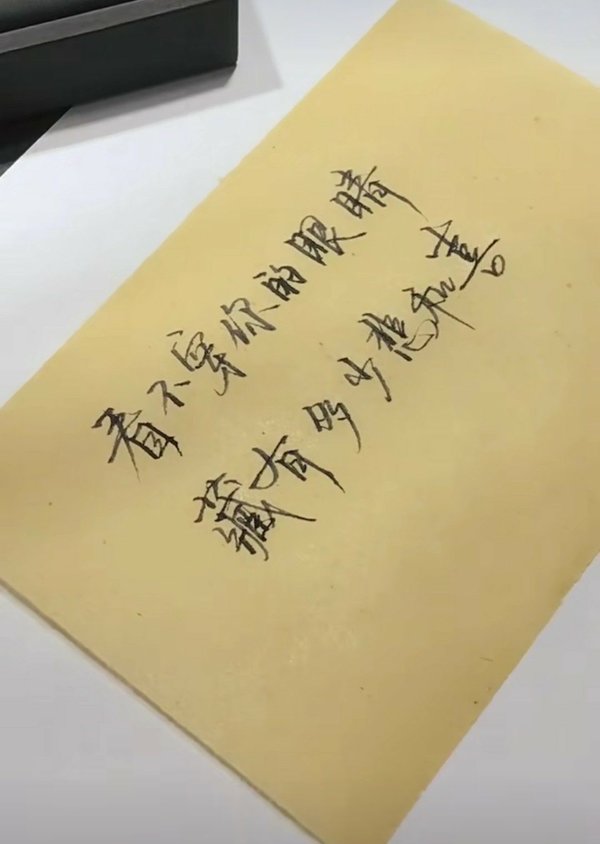 看不穿你的眼睛
藏有多少悲和喜